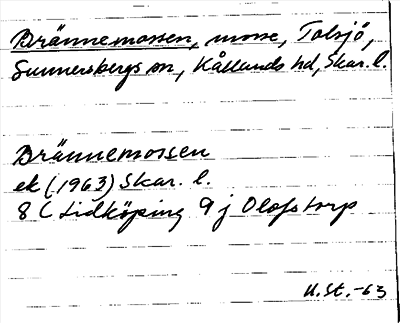 Brännemossen, mosse, Tolsjö,
Sunnersbergs sn, Kållands hd, Skar. l.
Brännemossen
ek (1963) Skar. l.
8 C Lidköping 9 j Olofstorp
U.St.-63